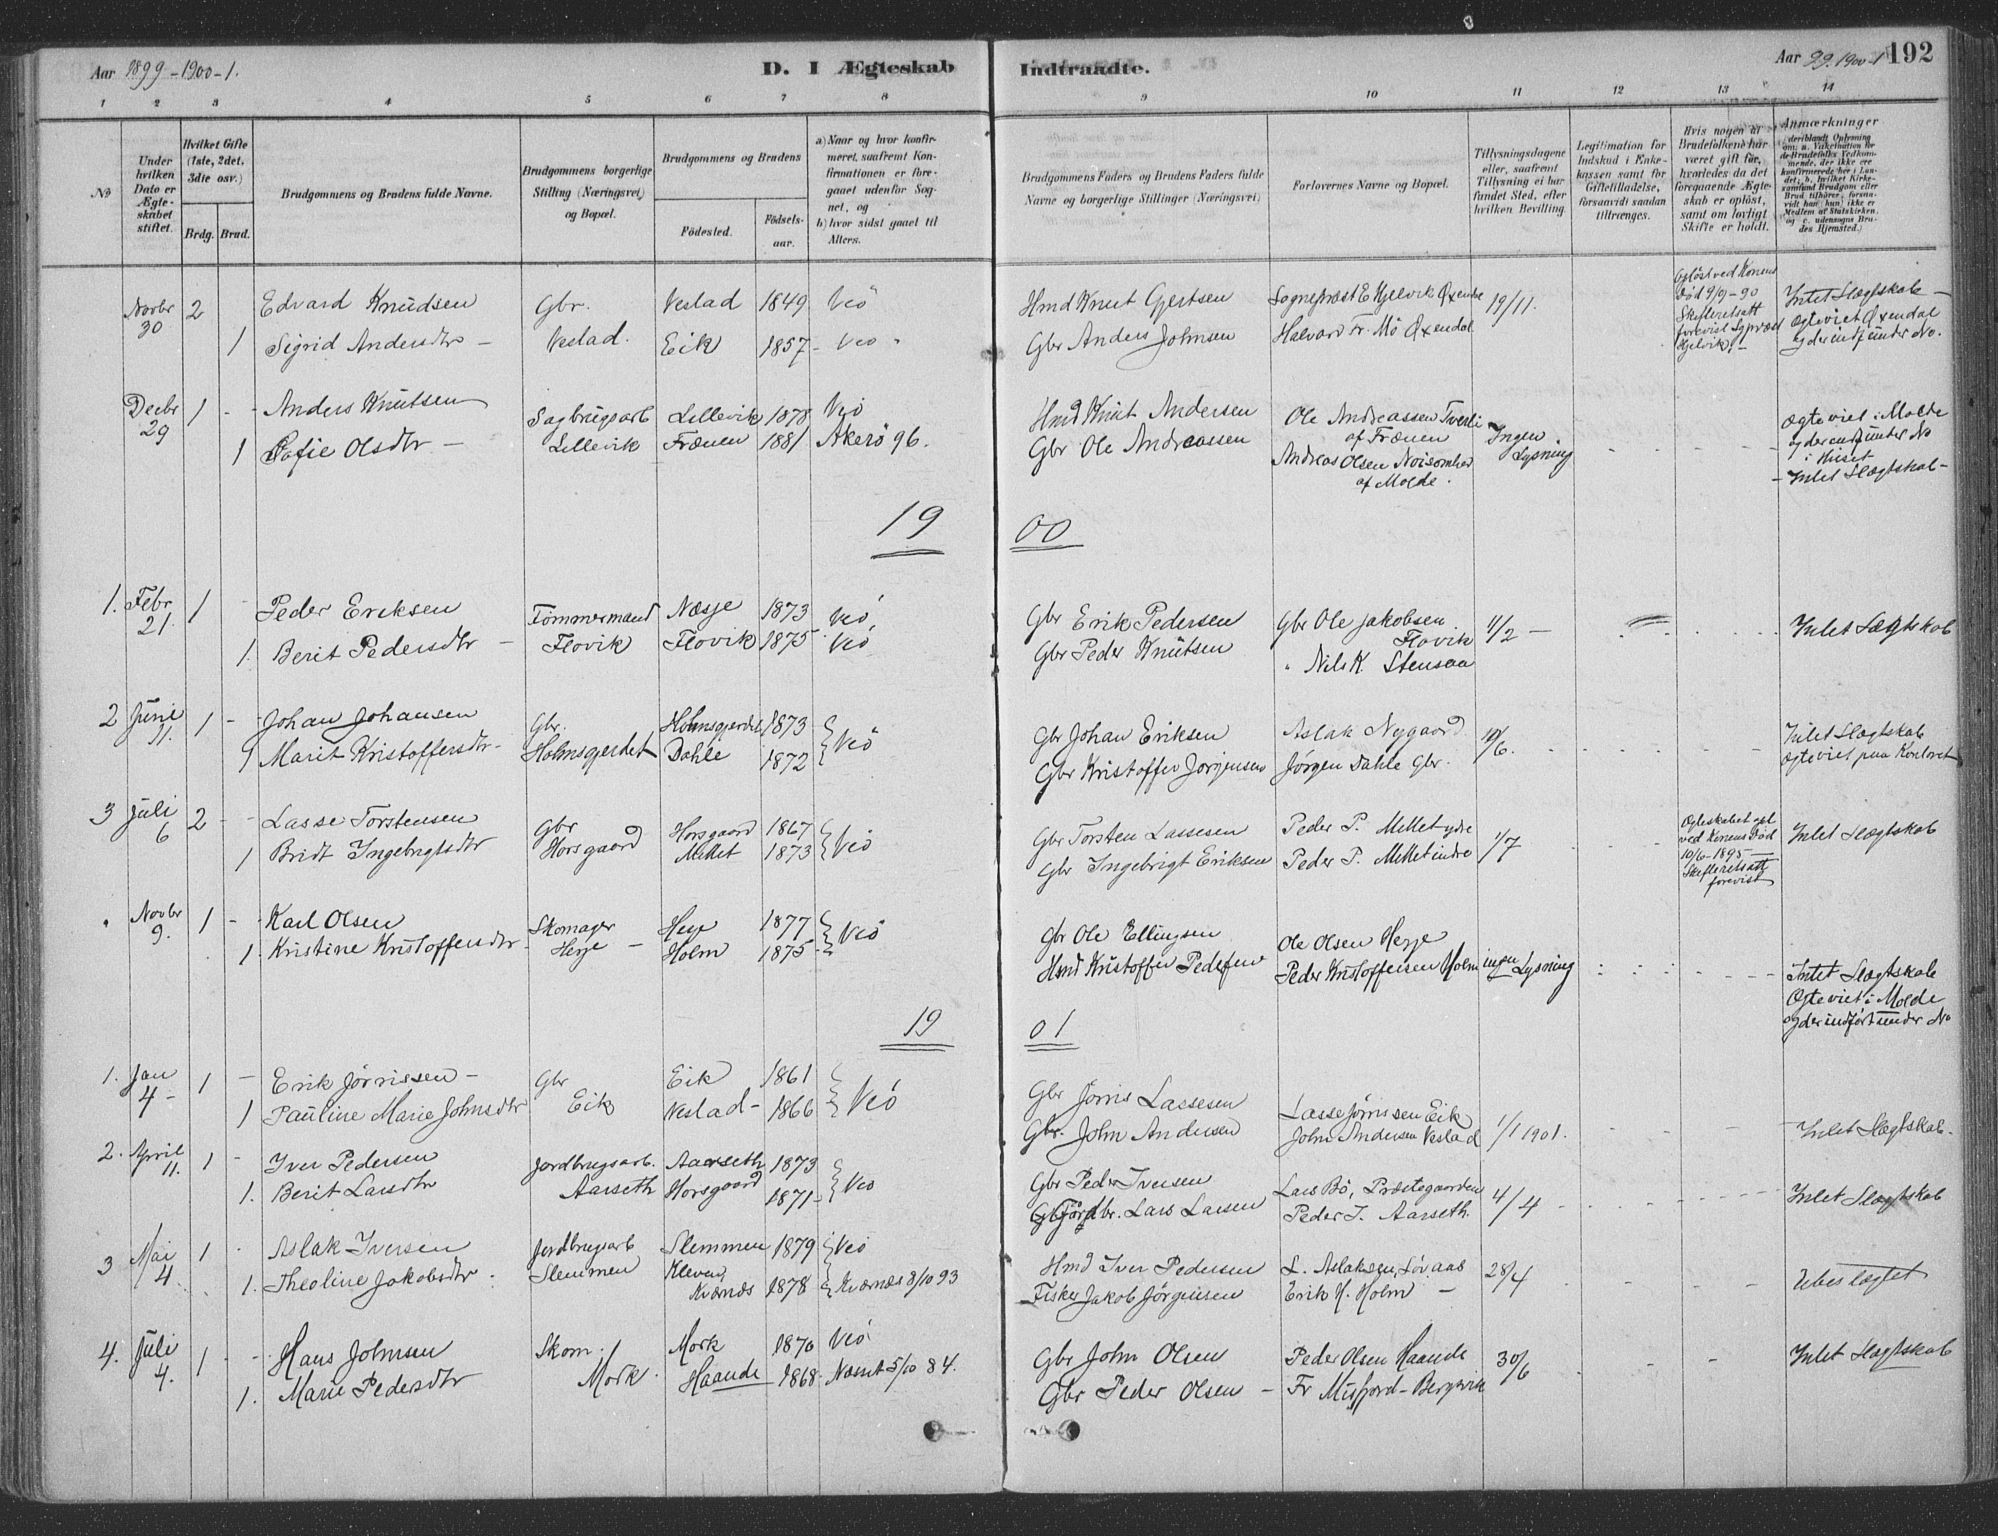 Aar 1899-1900-1.
D. I Ægteskab Indtraadte.
Aar 99.1900-1 192
1 2 3 4 5 6 7 8 9 10 11 12 13 14
No
Under hvilken Dato er Ægteskabet stiftet.
Hvilket Gifte (1ste, 2det, 3die osv.)
Brdg. Brud.
Brudgommens og Brudens fulde Navne.
Brudgommens borgerlige Stilling (Næringsvei) og Bopæl.
Brudgommens og Brudens
Födested.
Födselsaar.
a) Naar og hvor konfirmeret, saafremt Konfirmationen er foregaaet udenfor Sognet, og
b) hvor sidst gaaet til Alters.
Brudgommens Faders og Brudens Faders fulde Navne og borgerlige Stillinger (Næringsvei)
Forlovernes Navne og Bopæl.
Tillysningsdagene eller, saafremt Tillysning ei har fundet Sted, efter hvilken Bevilling.
Legitimation for Indskud i Enkekassen samt for Giftetilladelse, forsaavidt saadan tiltrænges.
Hvis nogen af Brudefolkene har været gift før, hvorledes da det foregaaende Ægteskab er oplöst, samt om lovligt Skifte er holdt.
Anmærkninger
Novbr 30 2 Edvard Knudsen Gbr. Vestad 1849 Veö Hmd Knut Gjertsen Sognepræst E Hjelvik Øxendal 19/11. Opløst ved Konens Død 9/9-90 Skifteretsatt forevist Sgpræst Hjelvik.- Intet Slægtskab -
1 Sigrid Andersdtr - Vestad. Eik 1857 - Veö Gbr Anders Johnsen Halvard Fr. Mö Øxendal Ægteviet Øxendal og der indf under No.
Decbr 29 1 - - Anders Knutsen Sagbrugsarb Lillevik 1878 Veö Hmd Knut Andersen Ole Andreassen Tverli af Frænen Ingen Lysning Ægteviet i Molde og der indf under No
1 Sofie Olsdtr - Lillevik Frænen 1881 Akerö 96. Gbr Ole Andreassen Andreas Olsen Noisomhed af Molde. i Huset - Intet Slægtskab -
1900
1. Febr 21. 1 Peder Eriksen Tømmermand Næsje 1873 Veö, Gbr Erik Pedersen Gbr Ole Jakobsen Flovik 11/2 - Intet Slægtskab
1. Berit Pedersdtr - Flovik Flovik 1875 Veö Gbr Peder Knutsen " Nils K. Stensaa
2 Juni 11. 1 - Johan Johansen Gbr. Holmsgjerdet 1873 Veö Gbr Johan Eriksen Aslak Nygaard 10/6. Intet Slægtskab
1 Marit Kristoffersdtr - Holmsgjerdet Dahle 1872 Gbr Kristoffer Jørgensen Jørgen Dahle Gbr. Ægteviet paa Kontoret
3 Juli 6 2 - - Lasse Torstensen Gbr Horsgaard 1867 Veö Gbr Torsten Lassesen Peder P. Mittet ydre 1/7 Ægteskabet opl ved Konens Død 10/6-1895 - Skifteretsatt forevist Intet Slægtskab
1 Bridt Ingebrigtsdtr Horsgaard Mittet 1873 Gbr Ingebrigt Eriksen Peder P. Mittet indre
Novbr 9. 1 - Karl Olsen Skomager Heje 1877 Veö Gbr Ole Ellingsen Ole Olsen Heje
1. Kristine Kristoffersdtr - Heje - Holm 1875 - Hmd Kristoffer Pedersen Peder Kristoffersen Holm ingen Lysning Intet Slægtskab Ægteviet i Molde og der indført under No
1901
1. Jan 4 - 1 - Erik Jørrissen - Gbr Eik 1861 Veö Gbr Jørris Lassesen Lasse Jørrissen Eik 1/1 1901. Intet Slægtskab.
1 Pauline Marie Johnsdtr Eik Vestad - 1866 Gbr. John Andersen John Andersen Vestad
2. April 11. 1 - Iver Pedersen Jordbrugsarb. Aarseth 1873 Veö Gbr Peder Iversen Lars Bö, Præstegaarden 4/4 Intet Slægtskab
1. Berit Larsdtr Aarseth Horsgaard 1871 - Jordbr. Lars Larsen Peder I. Aarseth.
3 Mai 4. 1 Aslak Iversen Jordbrugsarb Slemmen 1879 Veö Hmd Iver Pedersen L. Aslaksen, Løvaas 28/4 Ubeslægtet
1. Theoline Jakobsdtr. Slemmen Kleven, Kværnæs 1878 Kværnæs 8/10 93 Fisker Jakob Jörginsen Erik H. Holm -
4. Juli 4. 1 - - Hans Johnsen Skom. Mork 1870 Veö Gbr John Olsen Peder Olsen Haande 30/6 Intet Slægtskab
1. Marie Pedersdtr Mork. Haande 1868 - Næsset 5/10 84. Gbr Peder Olsen - Fr Misfjord - Bergsvik